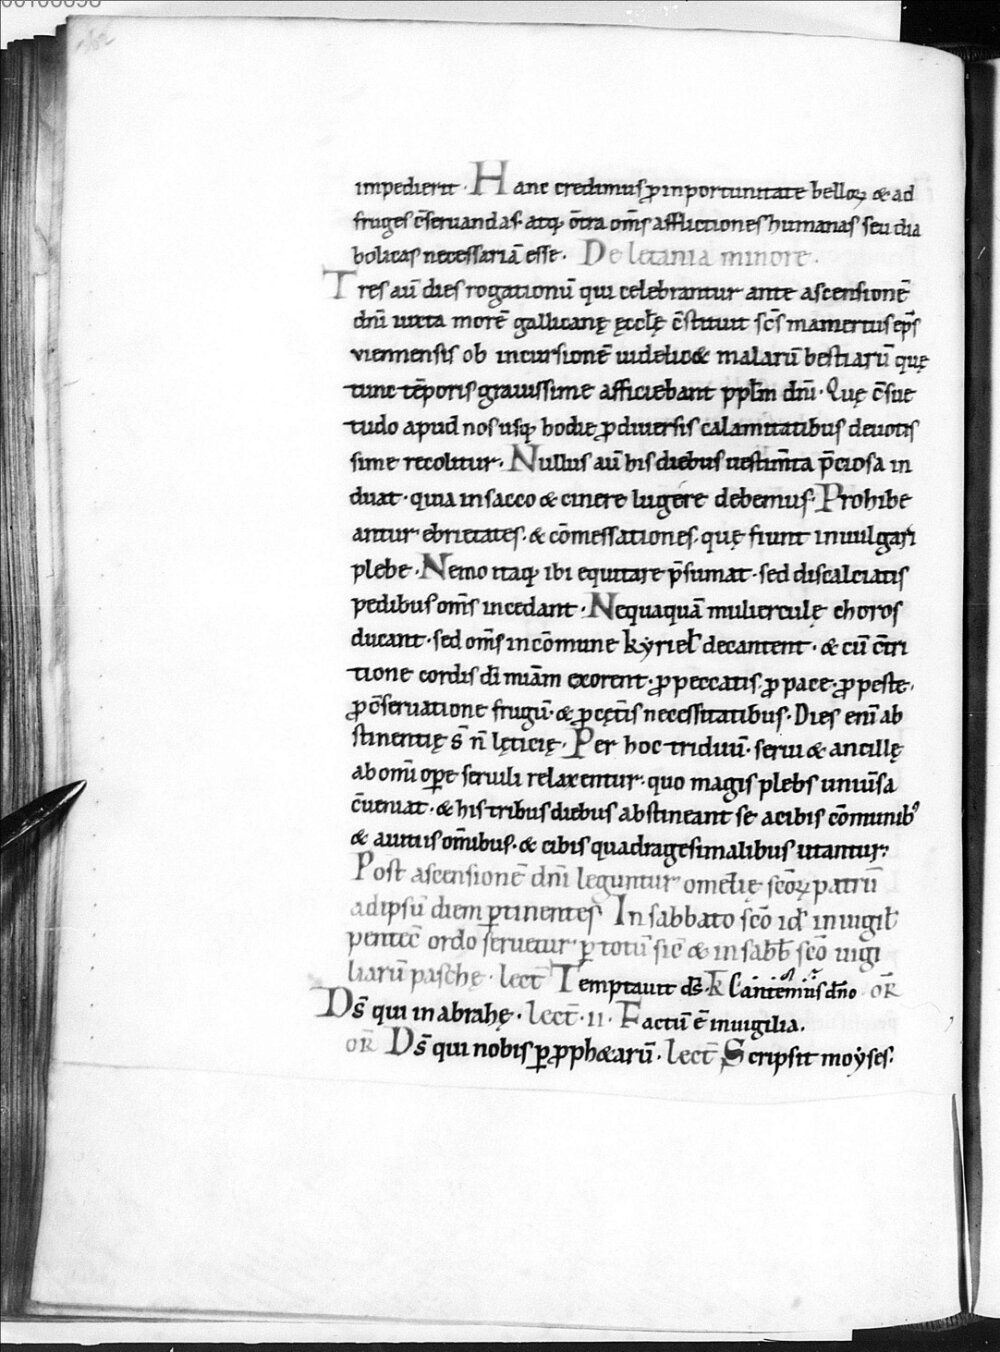 impedierit. Hanc credimus ꝓ inportunitate belloꝝ & ad
fruges c̄seruandas. atq; c̄tra om̄s afflictiones humanas seu dia
bolicas necessariā esse. De letania minore.
Tres aū dies rogationū qui celebrantur ante ascensionē
dn̄i iuxta morē gallicanę ęccłę c̄stituit sc̄s mamertus ep̄s
viennensis ob incursionē uidelic& malarū bestiarū quę
tunc tēporis grauissime afficiebant ppl̄m dn̄i. Quę c̄sue
tudo apud nos usq; hodie ꝓ diuersis calamitatibus deuotis
sime recolitur. Nullus aū his diebus uestim̄ta p̄ciosa in
duat. quia in sacco & cinere lugére debemus. Prohibe
antur ebrietates. & cōmessationes. quę fiunt in uulgari
plebe. Nemo itaq; ibi equitare p̄sumat. sed discalciatis
pedibus om̄s incedant. Nequaquā mulierculę choros
ducant. sed om̄s in cōmune kyrieł decantent. & cū c̄tri
tione cordis dī miām exorent. ꝓ peccatis. ꝓ pace. ꝓ peste.
ꝓ c̄seruatione frugū. & ꝓ cęt̄is necessitatibus. Dies enī ab
stinentię s̄ n̄ lęticię. Per hoc triduū. serui & ancillę
ab omī oꝑe seruili relaxentur. quo magis plebs uniūsa
c̄ueniat. & his tribus diebus abstineant se a cibis cōmunib;
& auiuis om̄ibus. & cibis quadragesimalibus utantur.
Post ascensionē dn̄i leguntur omelię scōꝝ patrū
ad ipsū diem ꝑtinentes. In sabbato scō id. in uigił
pentec̄ ordo seruetur ꝑ totū sic̄ & in sabb̄ scō uigi
liarū paschę. lect̄ Temptauit ds̄. R Cantemus dn̄o. OR̄
Ds̄ qui in abrahę. lect̄. ii. Factū ē in uigilia.
OR̄ Ds̄ qui nobis ꝑ ꝓph&arū. lect̄ Scripsit moẏses.